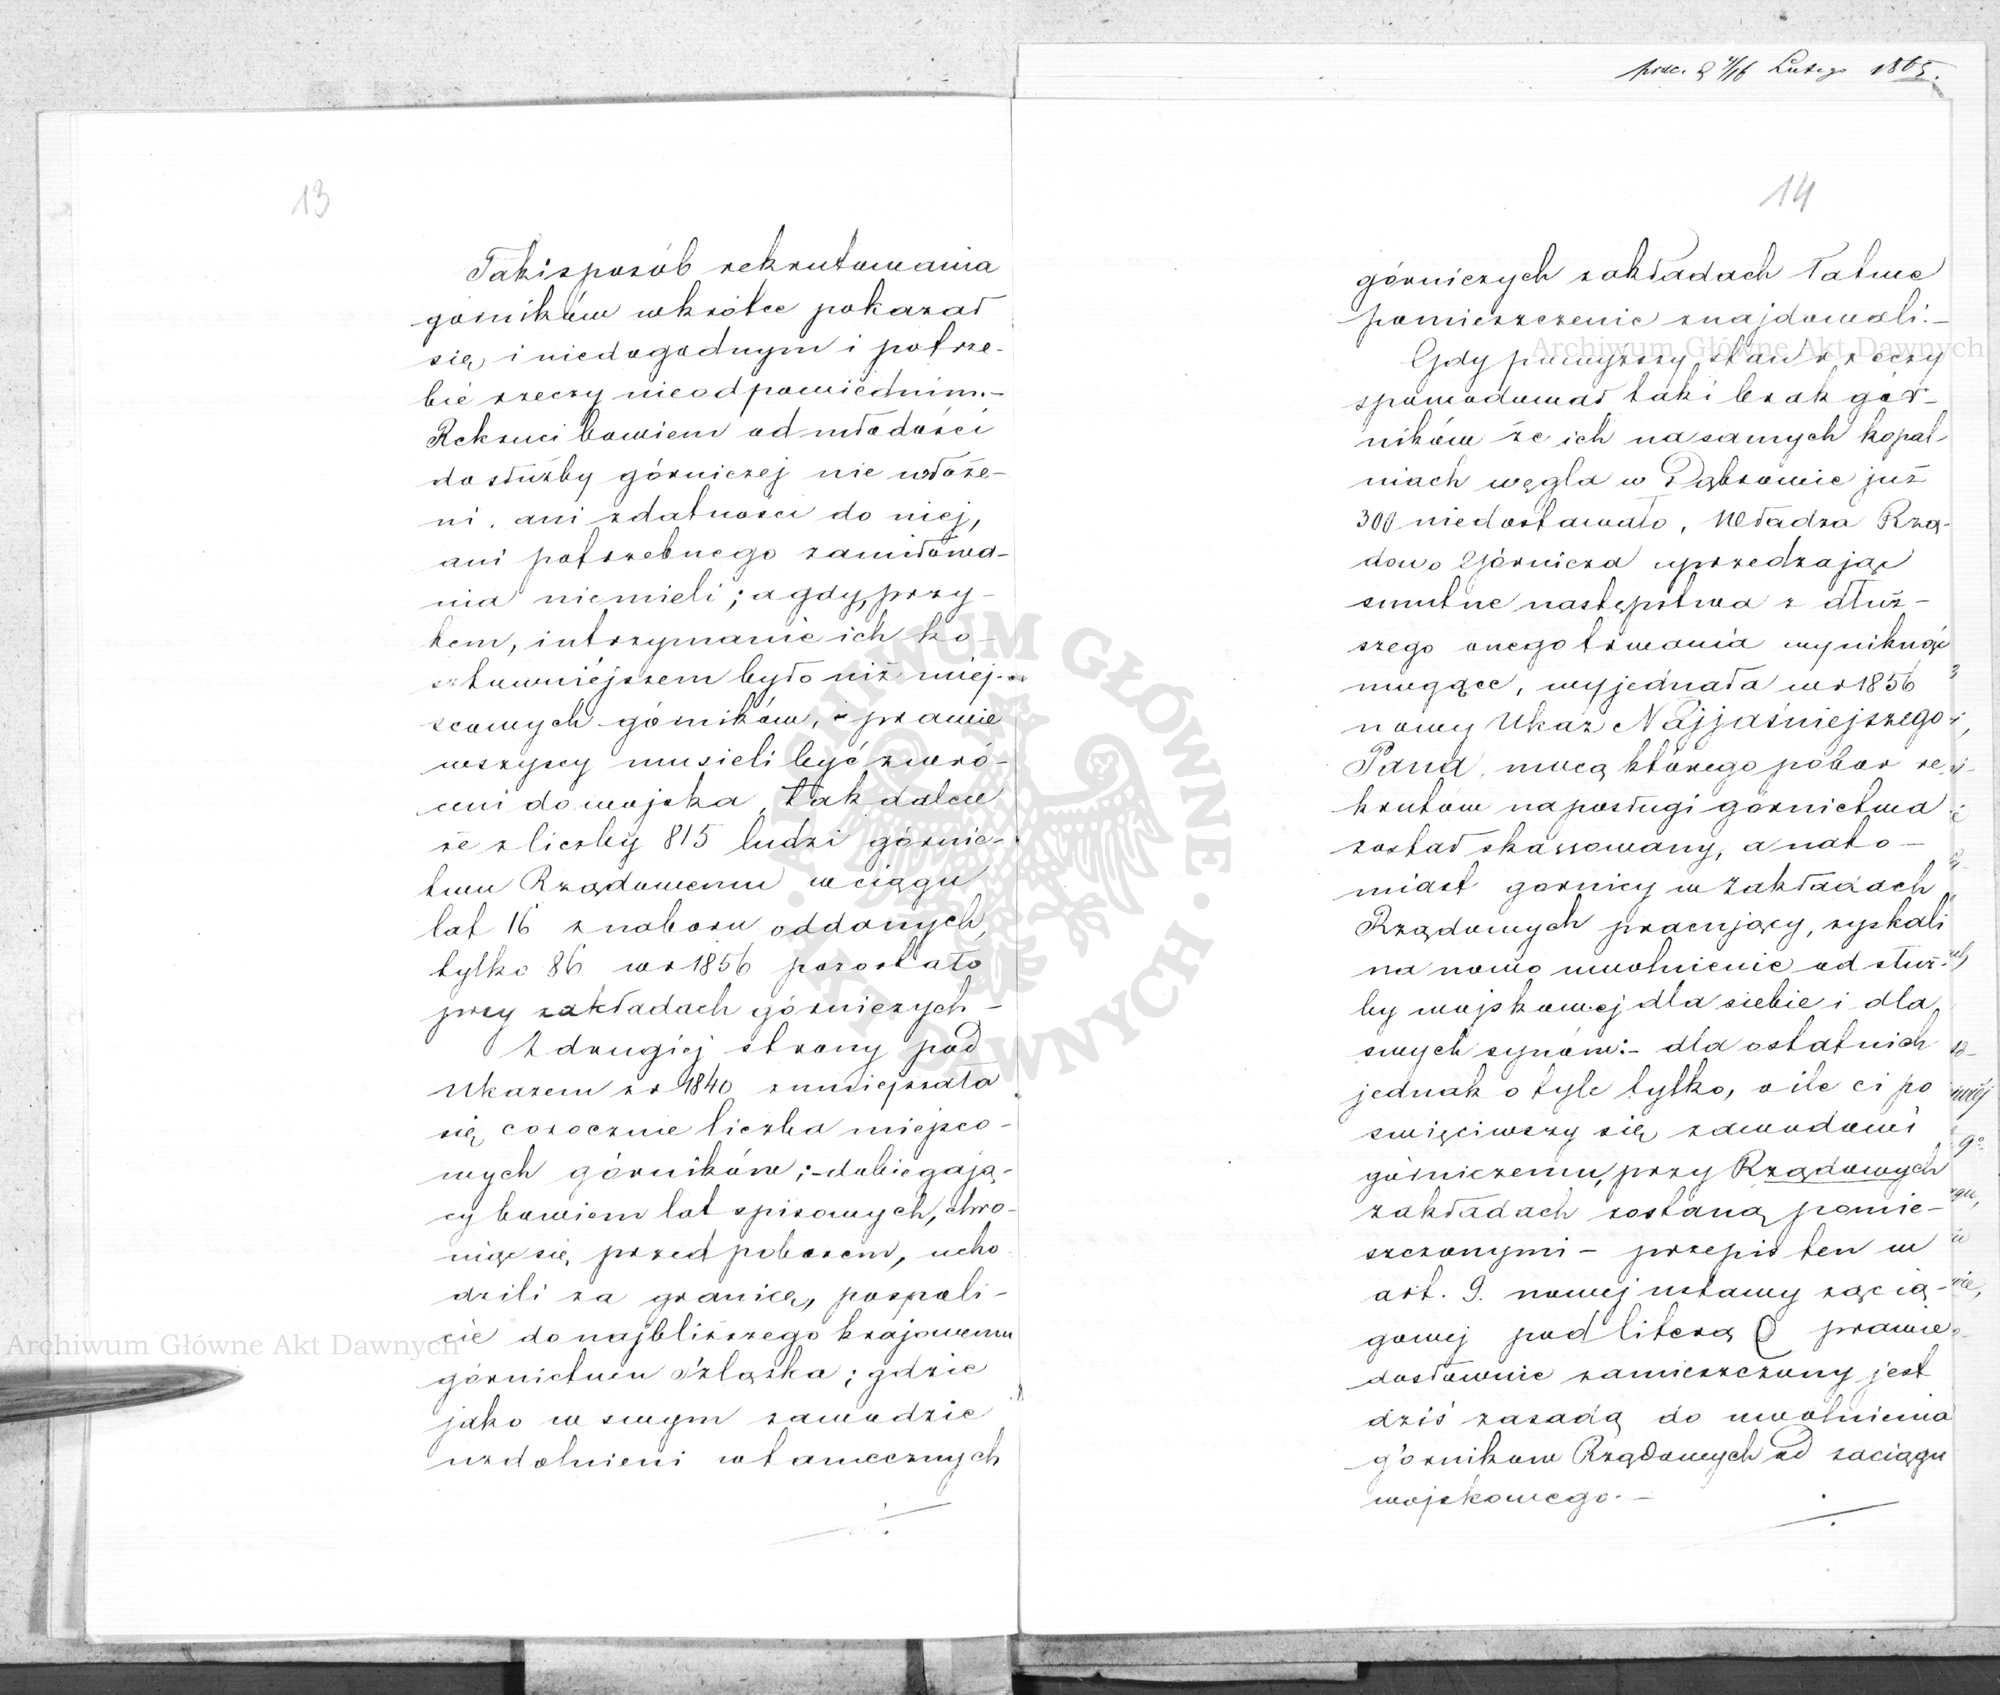 13
Taki sposób rekrutowania
górników wkrótce pokazał
się i niedogodnym i potrze-
bie rzeczy nieodpowiednim.-
Rekruci bowiem od młodości
do służby górniczej nie włoże-
ni, ani zdatności do niej,
ani potrzebnego zamiłowa-
nia niemieli; a gdy, przy-
tem, i utrzymanie ich ko-
sztowniejszem było niż miej-
scowych górników, i prawie
wszyscy musieli być zwró-
ceni do wojska, tak dalece
że z liczby 815 ludzi górnic-
twu Rządowemu w ciągu
lat 16 z naboru oddanych,
tylko 86 w r 1856 pozostało
przy zakładach górniczych -
Z drugiej strony pod
Ukazem z r 1840 zmniejszała
się corocznie liczba miejsco-
wych górników; - dobiegają-
cy bowiem lat spisowych, chro-
niąc się przed poborem, ucho
dzili za granicę, pospoli-
cie do najbliższego krajowemu
górnictwu Szląska; gdzie
jako w swym zawodzie
uzdolnieni w tamecznych
14
górniczych zakładach łatwe
pomieszczenie znajdowali.-
Gdy powyższy stan rzeczy
spowodował taki brak gór-
ników że ich na samych kopal-
niach węgla w Dąbrowie już
300 niedostawało, Władza Rzą-
dowo Górnicza uprzedzając
smutne następstwa z dłuż-
szego onego trwania wyniknąć
mogące, wyjednała w r 1856
nowy Ukaz Najjaśniejszego
Pana, mocą którego pobór re
krutów na posługi górnictwa
został skassowany, a nato-
miast gornicy w zakładach
Rządowych pracujący, zyskali
na nowo uwolnienie od służ-
by wojskowej dla siebie i dla
swych synów:- dla ostatnich
jednak o tyle tylko, o ile ci po
swięciwszy się zawodowi
górniczemu, przy Rządowych
zakładach zostaną pomie-
szczonymi - przepis ten w
art. 9. nowej ustawy zacią-
gowej pod literą prawie
dosłownie zamieszczony jest
dziś zasadą do uwolnienia
górnikow Rządowych od zaciągu
wojskowego.-
Lutego 1865.
Archiwum Główne Akt Dawnych
Archiwum Główne Akt Dawnych
ARCHIWUM GŁÓWNE AKT DAWNYCH